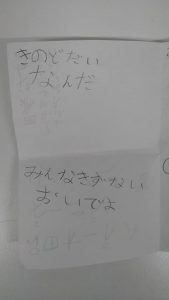 きのどだい
なんだ
みんなきがない
おしいでよ